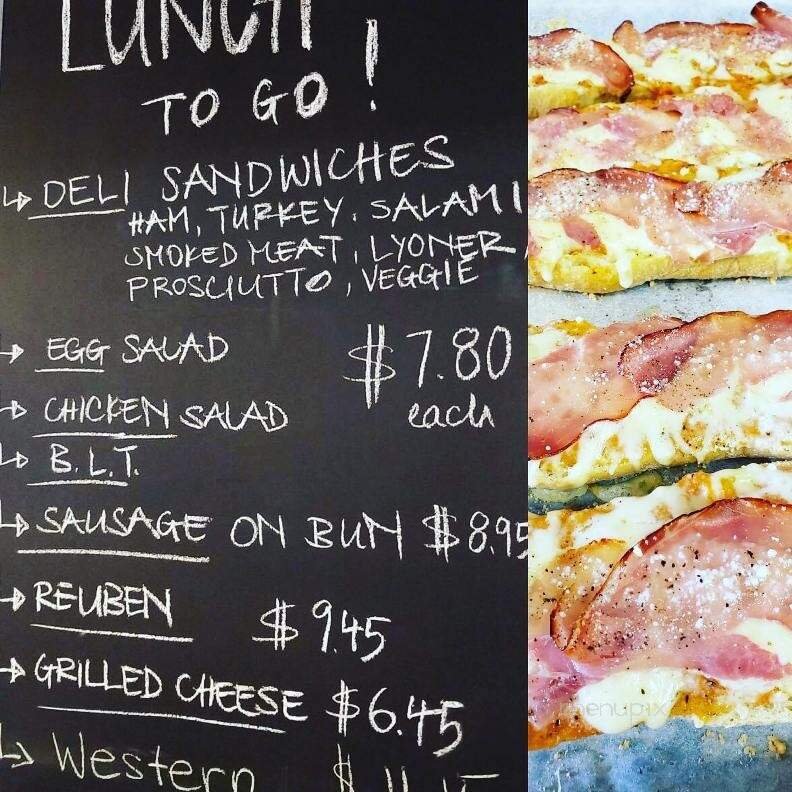 LUNCH
TO GO!
↳ DELI SANDWICHES
HAM, TURKEY, SALAMI
SMOKED MEAT, LYONER,
PROSCIUTTO, VEGGIE
→ EGG SALAD
$7.80
→ CHICKEN SALAD
each
↳ B.L.T.
↳ SAUSAGE ON BUN $8.95
→ REUBEN $9.45
→ GRILLED CHEESE $6.45
↳ Western $
menupix